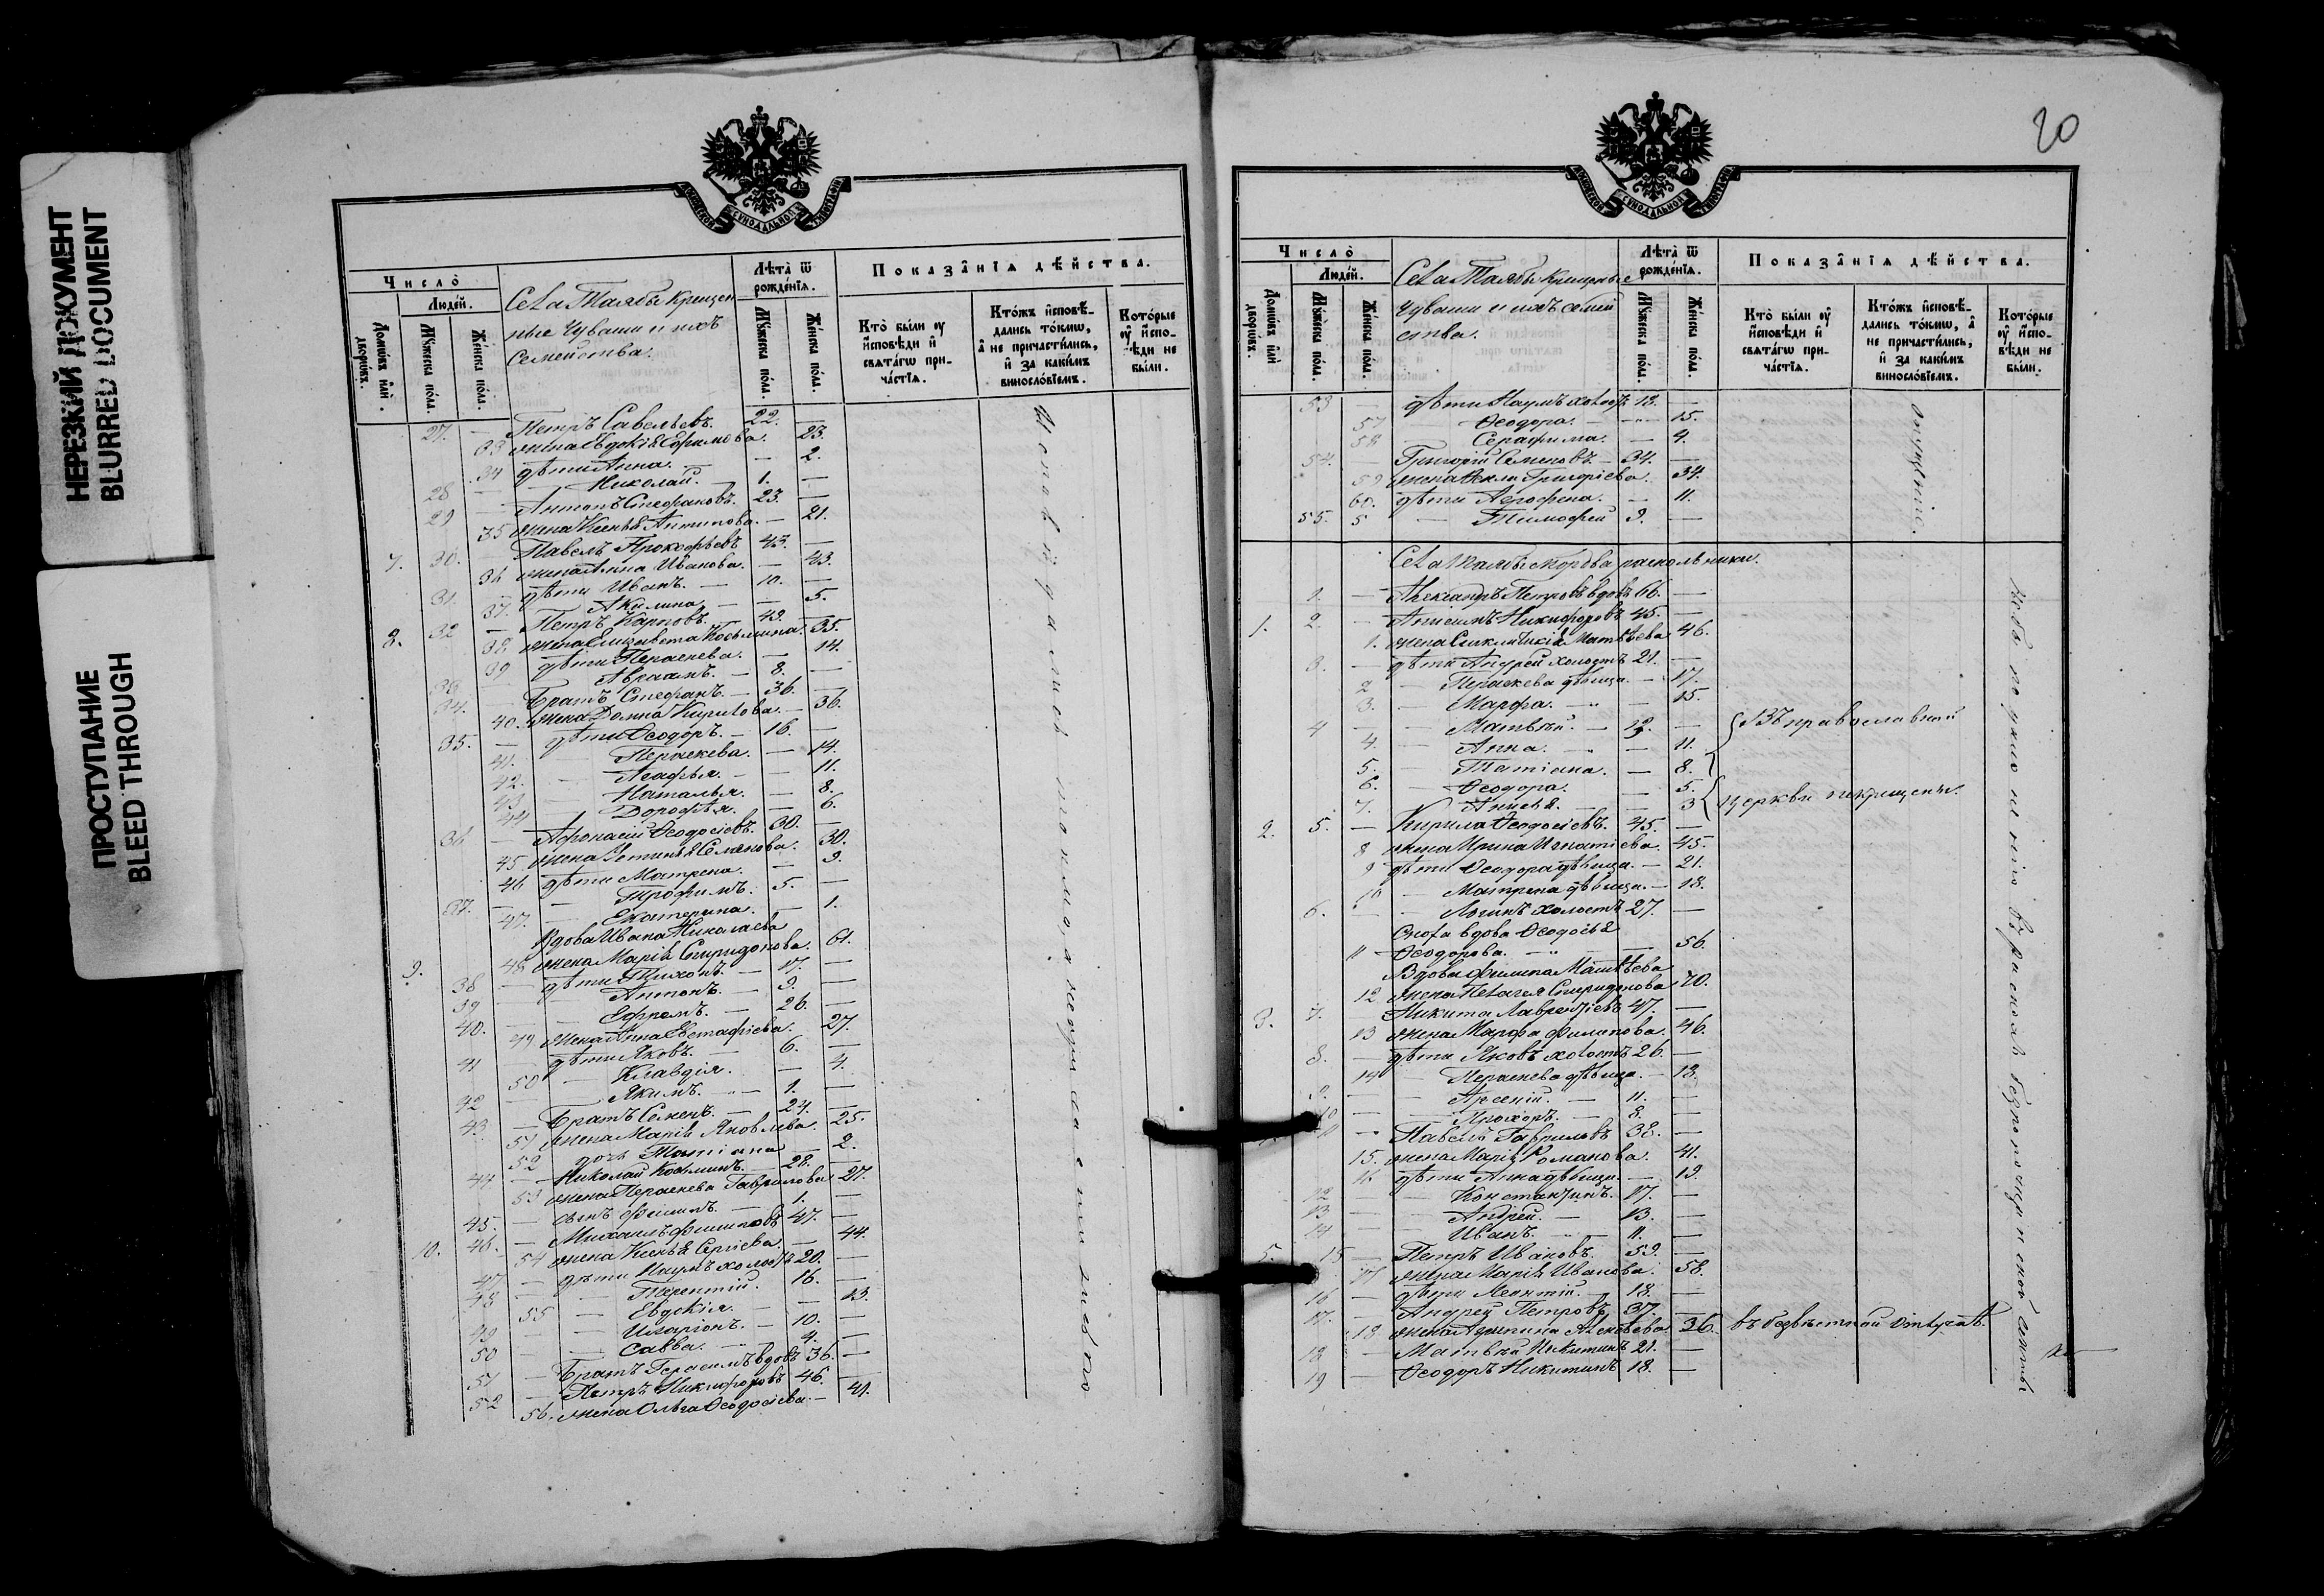 НЕРЕЗКИЙ ДОКУМЕНТ
BLURRED DOCUMENT
ПРОСТУПАНИЕ
BLEED THROUGH
МОСКОВСКОЙ СѴНОДАЛЬНОЙ ТИПОГРАФІИ
Число̀
Людéй.
Домѡ́въ и҆лѝ дворѡ́въ.
Мꙋ́жеска по́ла.
Же́нска по́ла.
Села Талябы Крещен
ные Чуваши и ихъ
Семейства.
Лѣта̀ ѿ рожде́нїѧ.
Мꙋ́жеска по́ла.
Же́нска по́ла.
Показа̂нїѧ дѣ́йства.
Кто̀ бы́ли ᲂу҆ и҆сповѣ́ди и҆ свѧта́гѡ прича́стїѧ.
Кто́жъ и҆сповѣ́дались то́кмѡ, а҆ не причасти́лись, и҆ за каки́мъ винослóвїемъ.
Кото́рые ᲂу҆ и҆сповѣ́ди не бы́ли.
27. — Петръ Савельевъ. 22. —
33 жена Евдокія Ефимова. 23.
34 дѣти Анна. — — 2.
28 — Николай. — 1. —
29 — Антонъ Стефановъ. 23. —
35 жена Ксенія Антипова. — 21.
7. 30. Павелъ Прокофьевъ 43. —
36 жена Анна Иванова. — 43.
31. — дѣти Иванъ. — 10. —
37. Акилина — — 5.
8. 32 — Петръ Карповъ. 43. —
38 жена Елизавета Косьмина. 35.
39 дѣти Параскева. — 14.
33 Авраамъ. — 8. —
34. Братъ Стефанъ. — 36. —
40. жена Домна Кирилова. — 36.
35. — дѣти Ѳеодоръ. — 16. —
41. — Параскева. — 14.
42. — Агафья. — — 11.
43 — Наталья. — 8.
44 — Дорофѣя. — 6.
36 — Афонасій Ѳеодосіевъ. 30. —
45 жена Устинья Семенова. 30.
46 дѣти Матрена. — 9.
37. — Трофимъ. 5. —
47. — Екатерина. — 1.
Вдова Ивана Николаева
9. 48 жена Марія Спиридонова. 61.
38 — дѣти Тихонъ. — 17. —
39 Антонъ. — 9. —
40. — Ефремъ. — 26. —
49 жена Анна Евстафіева. 27.
41 — дѣти Яковъ. — 6. —
50 — Клавдія. — 4.
42 — Якимъ. — 1. —
43 — Братъ Семенъ. — 24. —
51 жена Марія Яковлева. 25.
52 дочь Татіана — 2.
44 — Николай Косьминъ. — 28. —
53 жена Параскева Гаврилова 27.
45. — сынъ Филипъ. — 1. —
10. 46. — Михаилъ Филиповъ 47. —
54 жена Ксенія Сергіева. — 44.
47 — дѣти Наумъ холостъ 20. —
48 — Терентій. 16. —
55 — Евдокія. — — 13.
49 — Иларіонъ. — 10. —
50 — Савва. — 4. —
51 — Братъ Герасимъ вдовъ 36. —
52 — Петръ Никифоровъ 46. —
56. жена Ольга Ѳеодосіева. — 41.
20
МОСКОВСКОЙ СѴНОДАЛЬНОЙ ТИПОГРАФІИ
Число̀
Людéй.
Домѡ́въ и҆лѝ дворѡ́въ.
Мꙋ́жеска по́ла.
Же́нска по́ла.
Села Талябы крещеные
Чуваши и ихъ семей
ства.
Лѣта̀ ѿ рожде́нїѧ.
Мꙋ́жеска по́ла.
Же́нска по́ла.
Показа̂нїѧ дѣ́йства.
Кто̀ бы́ли ᲂу҆ и҆сповѣ́ди и҆ свѧта́гѡ прича́стїѧ.
Кто́жъ и҆сповѣ́дались то́кмѡ, а҆ не причасти́лись, и҆ за каки́мъ винослóвїемъ.
Кото́рые ᲂу҆ и҆сповѣ́ди не бы́ли.
53 — дѣти Наумъ холостъ 18. —
57 — Ѳеодора. — 15.
58 — Серафима. — 4.
54. — Григорій Семеновъ. — 34. —
59 жена Ѳекла Григоріева. 34.
60. дѣти Агрофена. — 11.
55. 5 — Тимофей 9. —
отсутствіе.
Села Талябы Мордва раскольники.
1. — Александръ Петровъ вдовъ 66. —
1. 2. — Анисимъ Никифоровъ 45. —
1. жена Матвѣева 46.
3. — дѣти Андрей холостъ 21. —
2 — Параскева дѣвица. — 17.
3. — Марфа. — 15.
4 — Матвѣй. — 12. —
4. — Анна. — 11.
5. — Татіана. — 8.
6. — Ѳеодора. 5.
7. — Анисія. — 3
Въ православной
церкви некрещены.
2. 5. — Кирила Ѳеодосіевъ. 45. —
8 жена Ирина Игнатіева. 45.
9 дѣти Ѳеодора дѣвица. — 21.
10 — Матрена дѣвица. — 18.
6. — Логинъ холостъ 27. —
Сноха вдова Ѳеодосія
11 Ѳеодорова. — — 56.
Вдова Филипа Матвѣева
12 жена Пелагея Спиридонова 70.
3. 7. Никита Лаврентіевъ 47. —
13 жена Марфа Филипова. 46.
8. — дѣти Яковъ холостъ 26. —
14 — Параскева дѣвица. — 18.
9. — Арсеній. — 11. —
10 — Прохоръ. — 8. —
11 — Павелъ Гавриловъ 38. —
15. жена Марія Романова. 41.
16. дѣти Анна дѣвица. — 19.
12 — Константинъ. 17. —
13 — Андрей. — 13. —
14 — Иванъ. — 11. —
5. 15 — Петръ Ивановъ. 59. —
17 жена Марія Иванова. 58.
16 — дѣти Леонтій. — 18. —
17. — Андрей Петровъ 37. —
18 жена Агрипина 36. въ безвѣстной отлучкѣ.
18 — Матвѣй Никитинъ 21. —
19 — Ѳеодоръ Никитинъ 18. —